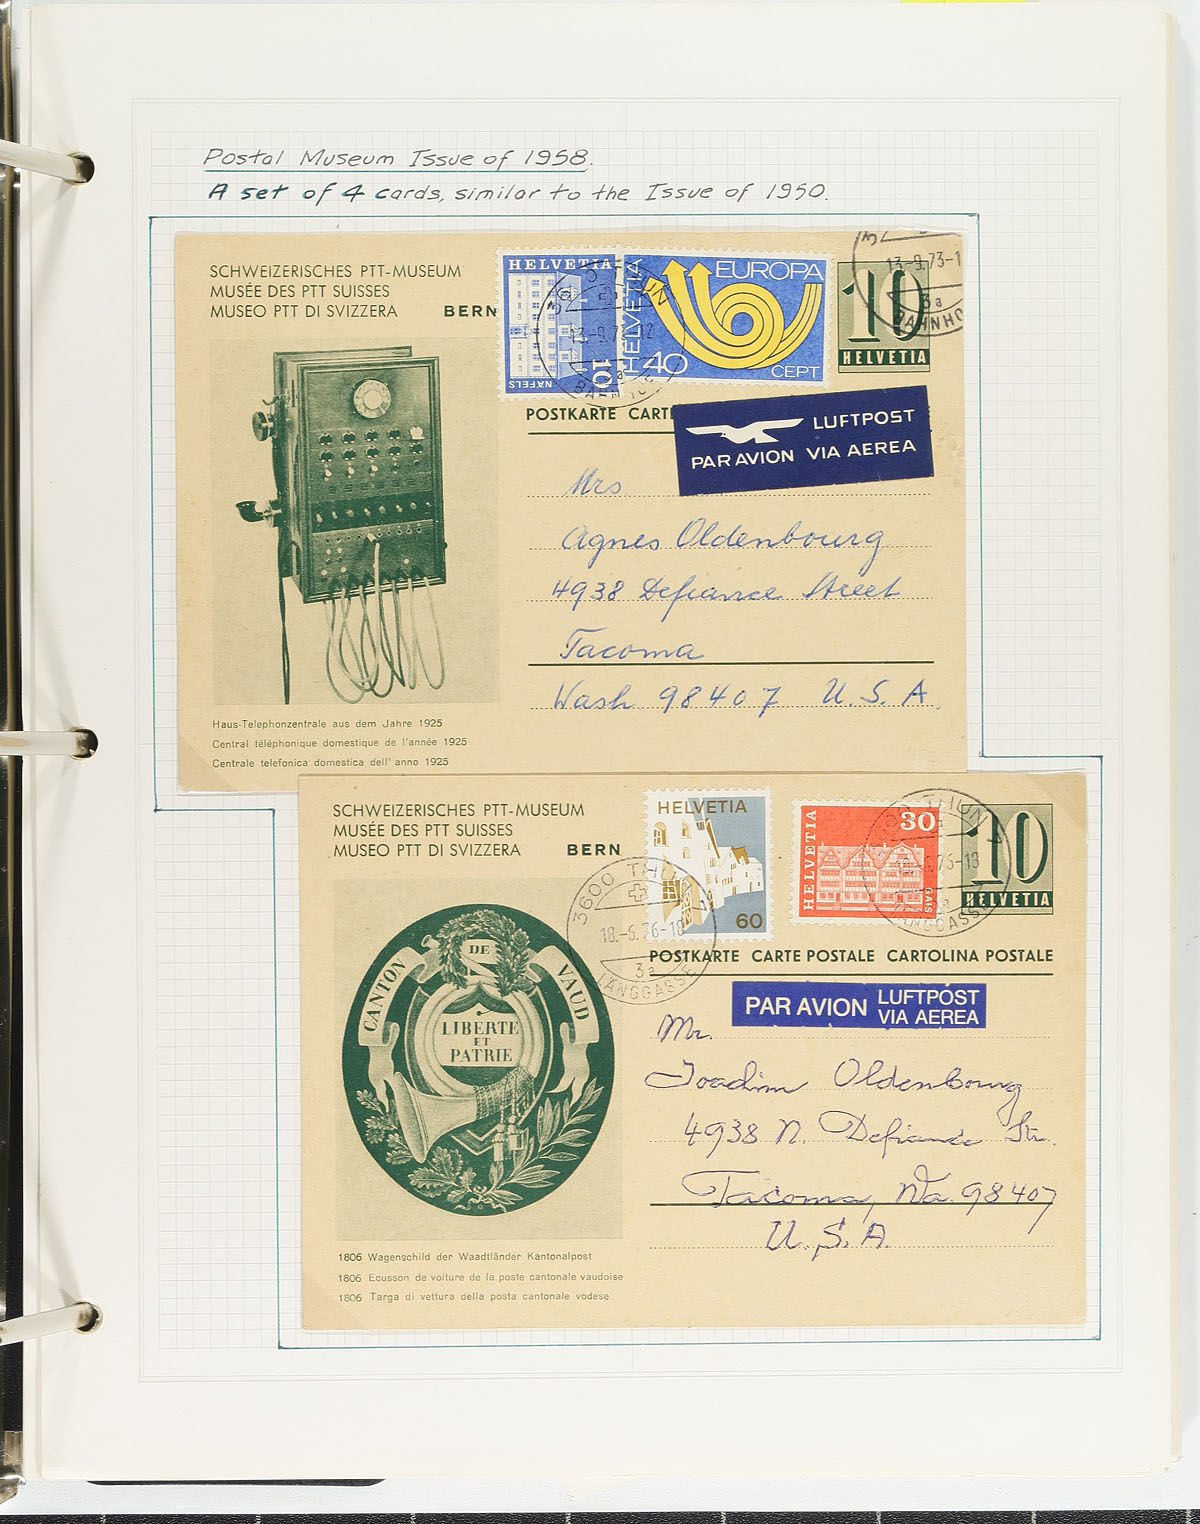 Postal Museum Issue of 1958.
A set of 4 cards, similar to the Issue of 1950.
SCHWEIZERISCHES PTT-MUSEUM
MUSÉE DES PTT SUISSES
MUSEO PTT DI SVIZZERA BERN
HELVETIA
10
NÄFELS
HELVETIA
40
EUROPA
CEPT
10
HELVETIA
13-9.73-1
3a
BAHNHO
POSTKARTE CART
LUFTPOST
PAR AVION VIA AEREA
Mrs
Agnes Oldenbourg
4938 Defiance Street
Tacoma
Wash 98407 U.S.A.
Haus-Telephonzentrale aus dem Jahre 1925
Central téléphonique domestique de l'année 1925
Centrale telefonica domestica dell' anno 1925
SCHWEIZERISCHES PTT-MUSEUM
MUSÉE DES PTT SUISSES
MUSEO PTT DI SVIZZERA BERN
HELVETIA
60
HELVETIA
30
GAIS
10
HELVETIA
3600 THUN
18.-6.76-18
3a
LÄNGGASSE
POSTKARTE CARTE POSTALE CARTOLINA POSTALE
PAR AVION LUFTPOST
VIA AEREA
CANTON DE VAUD
LIBERTE
ET
PATRIE
Mr.
Joachim Oldenbourg
4938 N. Defiance Str.
Tacoma, Wa. 98407
U.S.A.
1806 Wagenschild der Waadtländer Kantonalpost
1806 Ecusson de voiture de la poste cantonale vaudoise
1806 Targa di vettura della posta cantonale vodese